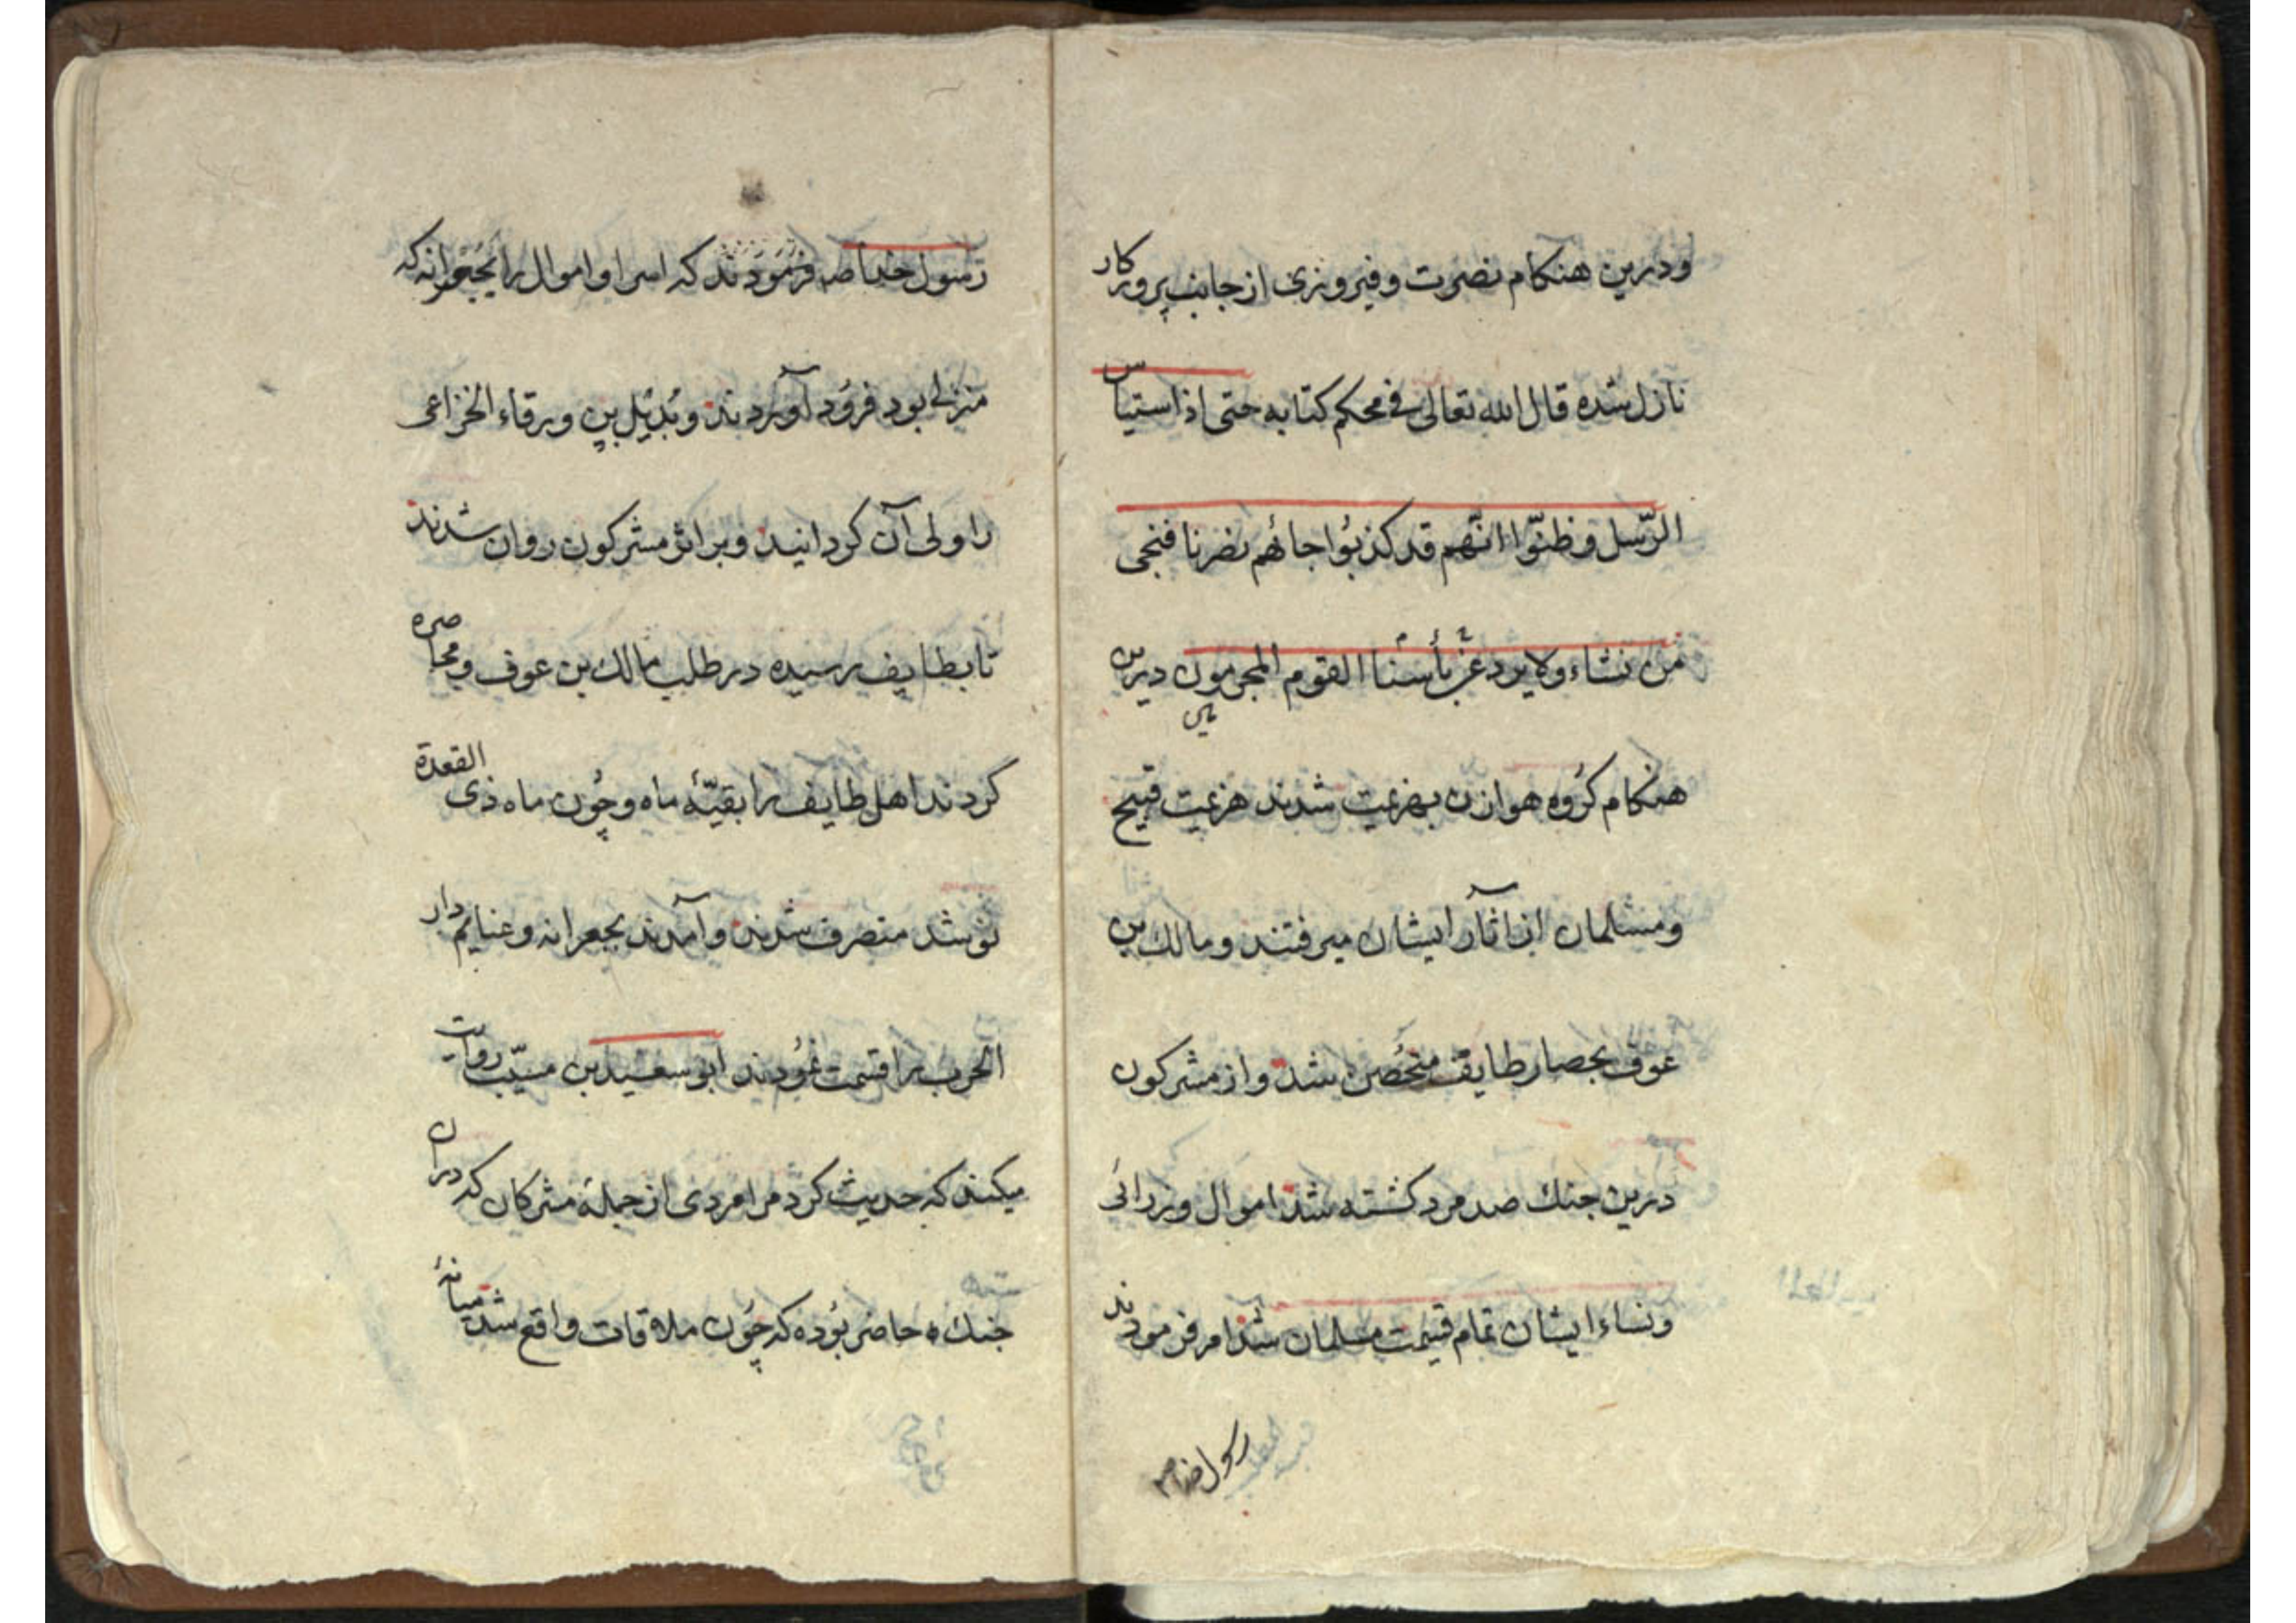 ودرین هنکام نصرت و فیروزی از جانب پروردکار
نازل شده قال الله تعالی فی محکم کتابه حتی اذا استیاس
الرّسل وظنّوا انّهم قد کذبُوا جائهم نصرنا فنجی
من نشاء ولا یرد عن بأسنا القوم المجرمون درین
هنکام کرُوه هوازن بهزیمت شدند هزیمت قبیح
ومسلمان از آثار ایشان میرفتند ومالك بن
عوف بحصار طایف منحُصن شد و از مشرکون
درین جنك صد مرد کشته شد اموال وزرائی
ونساء ایشان تمام قیمت مسلمان شد امر فرمودند
رسول خدا ص
رسول خدا ص فرمُودند که اسرا و اموال را بجُعرانه که
منزلی بود فرُود آوردند وبُدَیل بن ورقاء الخزاعی
را ولی آن کردانید وبر اثر مشرکون روان شدند
تا بطایف رسیده در طلب مالك بن عوف ومحاصره
کردند اهل طایف را بقیّهٔ ماه وچُون ماه ذی القعدة
نو شد منصرف شدند وآمدند بجعرانه وغنایم دار
الحرب را قسمت نمُودند ابو سعید بن مسیّب روایت
میکند که حدیث کرد مرا مردی از جملهٔ مشرکان که دران
جنك حاضر بُوده که چُون ملاقات واقع شد میانهٔ